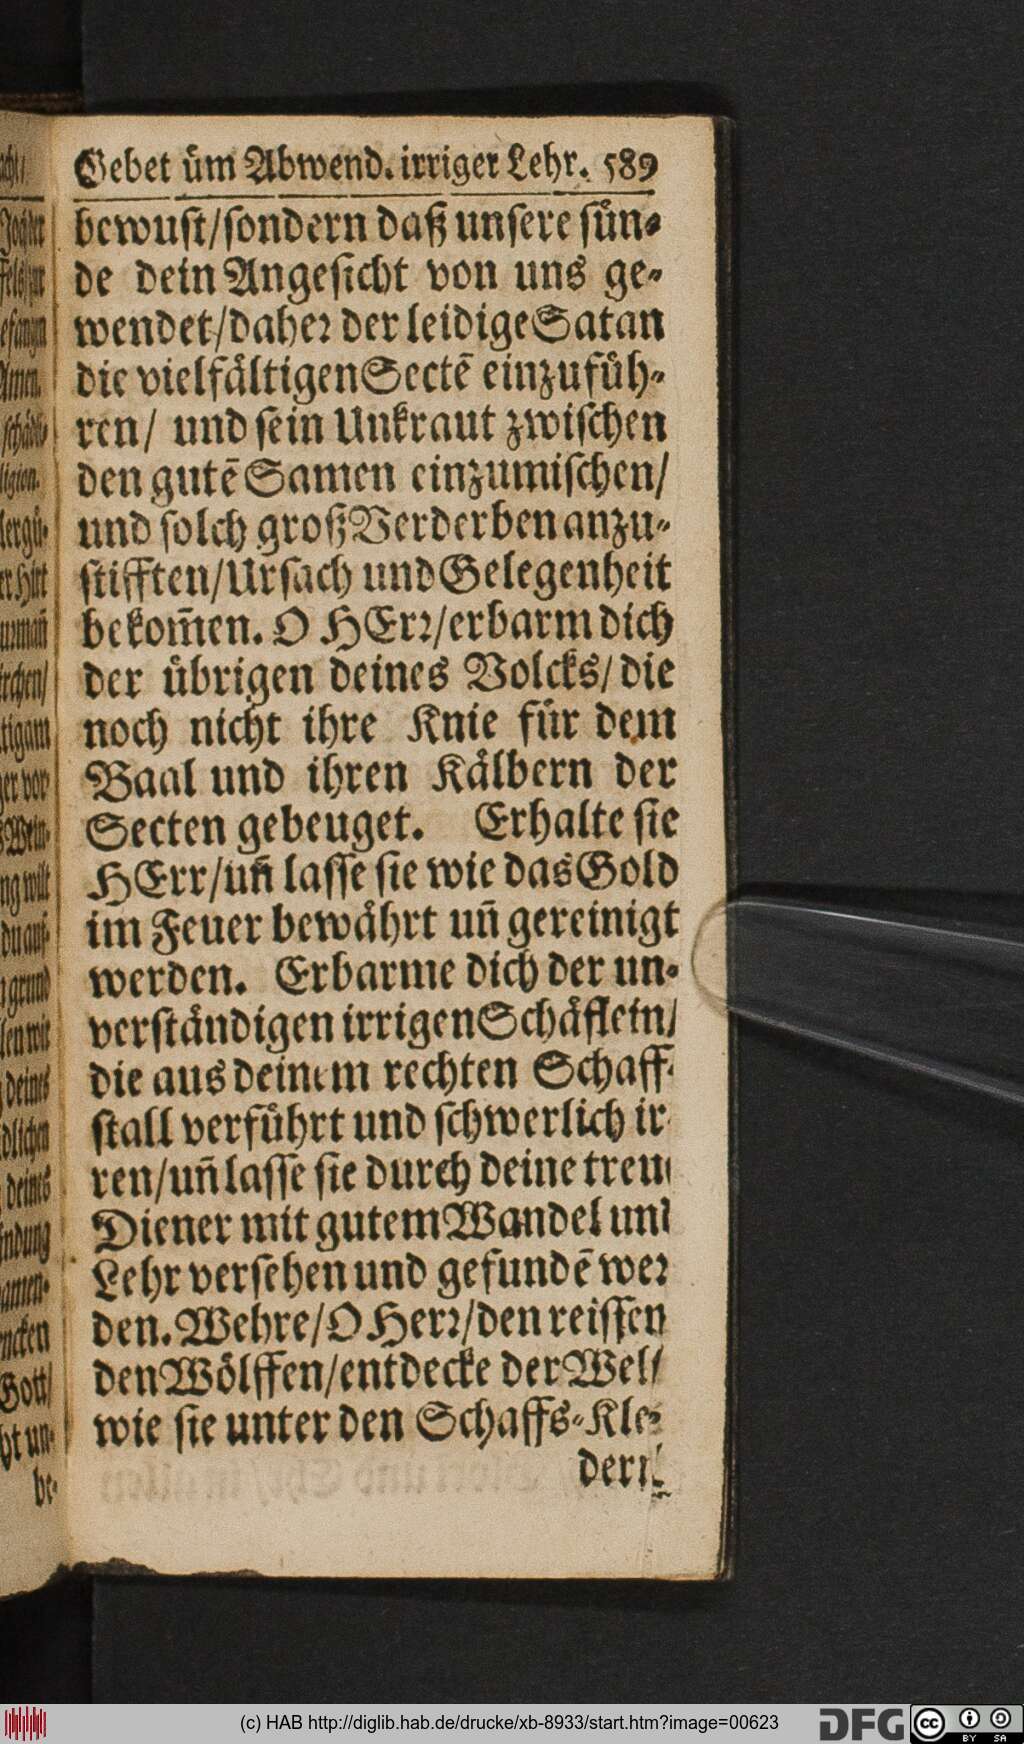 Gebet üm Abwend. irriger Lehr. 589
bewust/sondern daß unsere sün-
de dein Angesicht von uns ge-
wendet/daher der leidige Satan
die vielfältigen Sectē einzufüh-
ren/ und sein Unkraut zwischen
den gutē Samen einzumischen/
und solch groß Verderben anzu-
stifften/Ursach und Gelegenheit
bekom̄en. O HErr/erbarm dich
der übrigen deines Volcks/ die
noch nicht ihre Knie für dem
Baal und ihren Kälbern der
Secten gebeuget. Erhalte sie
HErr/un̄ lasse sie wie das Gold
im Feuer bewährt un̄ gereinigt
werden. Erbarme dich der un-
verständigen irrigen Schäflein/
die aus deinem rechten Schaff-
stall verführt und schwerlich ir-
ren/un̄ lasse sie durch deine treu
Diener mit gutem Wandel und
Lehr versehen und gefundē wer
den. Wehre/O Herr/den reissen
den Wölffen/entdecke der Wel/
wie sie unter den Schaffs-Kle-
dern
(c) HAB http://diglib.hab.de/drucke/xb-8933/start.htm?image=00623
DFG cc BY SA